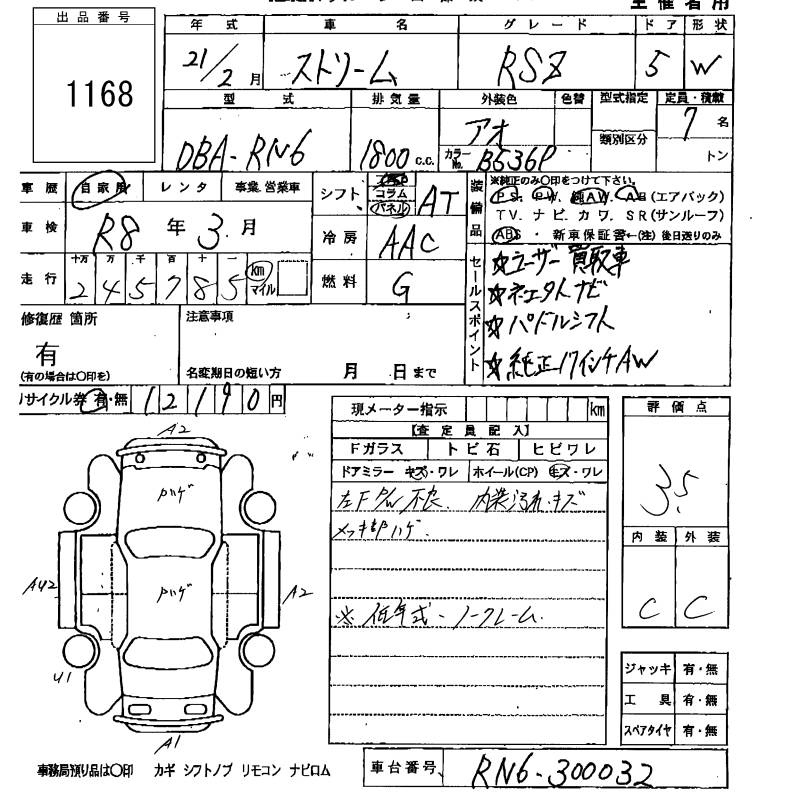 主催者用
出品番号
1168
年式 車名 グレード ドア 形状
21/2月 ストリーム RSZ 5 W
型式 排気量 外装色 色替 型式指定 定員・積載
類別区分
DBA-RN6 1800 c.c. アオ カラーNo. B536P 7名
トン
車歴 自家用 レンタ 事業、営業車 シフト コラム パネル AT
車検 R8年3月 冷房 AAC
走行 十万 万 千 百 十 一 km マイル
2 4 5 7 8 5
燃料 G
装備品
※純正のみ○印をつけて下さい。
PS. PW. 純AW. AB(エアバック)
TV. ナビ. カワ. SR(サンルーフ)
ABS ・ 新車保証書←(注) 後日送りのみ
セールスポイント
☆ユーザー買取車
☆ネエタトナビ
☆パドルシフト
☆純正17インチAW
修復歴 箇所
有
(有の場合は○印を)
注意事項
名変期日の短い方 月 日まで
リサイクル券 有・無 12190円
現メーター指示 km
【査定員記入】
Fガラス トビ石 ヒビワレ
ドアミラー キズ・ワレ ホイール(CP) キズ・ワレ
左Fタイヤ不良. 内装汚れ・キズ
メッキ部ハゲ.
※ 低年式・ノークレーム.
評価点
3.5
内装 外装
C C
ジャッキ 有・無
工具 有・無
スペアタイヤ 有・無
A2
Pハゲ
AU2
Pハゲ
A2
U1
A1
事務局預り品は○印 カギ シフトノブ リモコン ナビロム
車台番号 RN6-300032